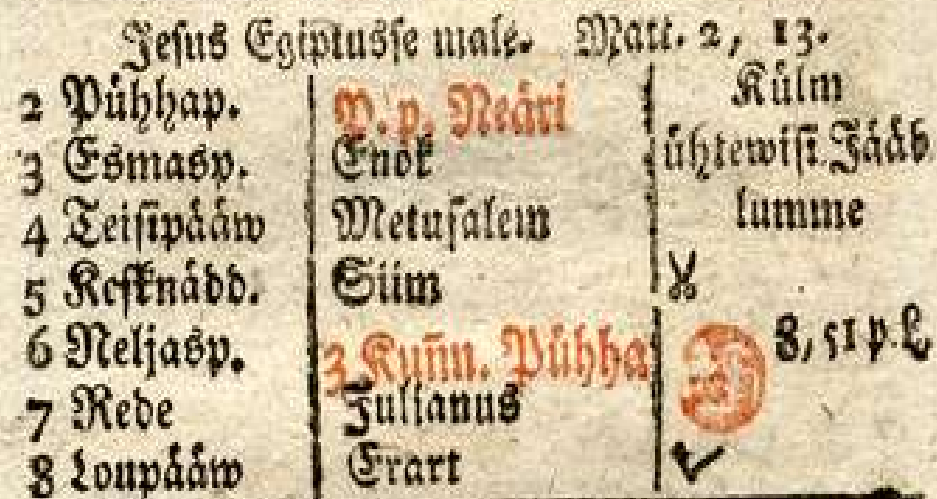 Jesus Egiptusse male. Matt. 2, 13.
2 Pühhap. P. p. Neäri Külm
3 Esmasp. Enok ühtewisi. Jääb
4 Teisipääw Metusalem lumme
5 Kesknädd. Siim
6 Neljasp. 3 Kuñn. Pühha 8, 51 p. L
7 Rede Julianus
8 Loupääw Erart